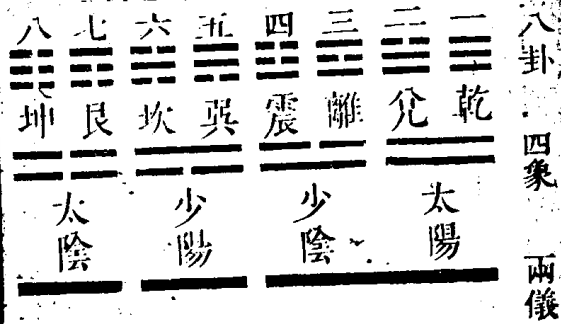 八卦 四象 兩儀
一 二 三 四 五 六 七 八
乾 兌 離 震 巽 坎 艮 坤
太陽 少陰 少陽 太陰